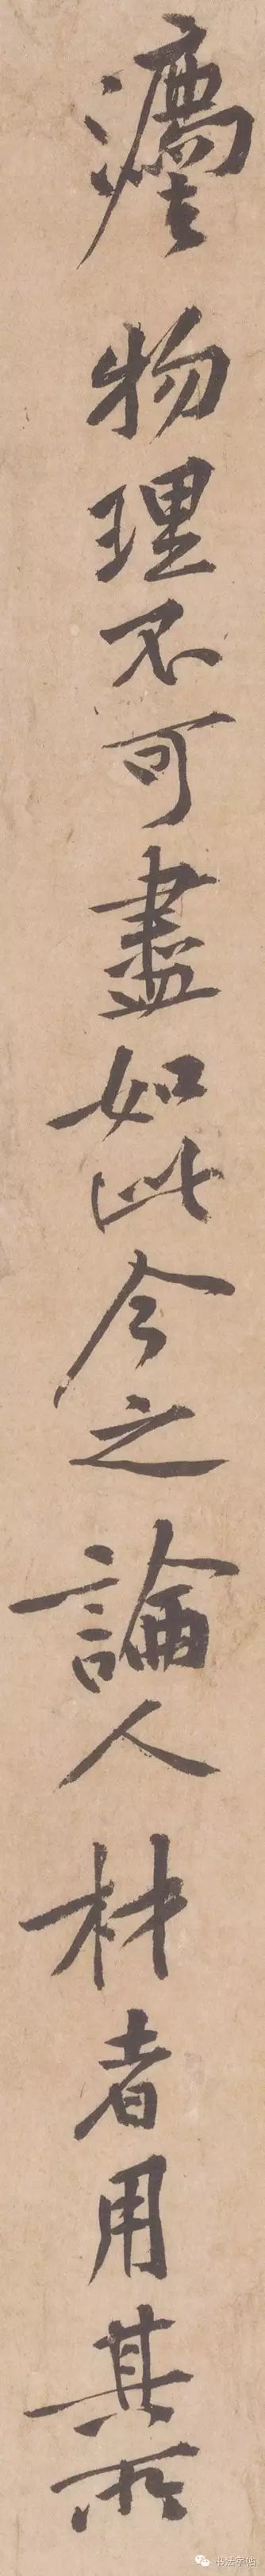 物理不可盡如此今之論人材者用其所
书法字帖